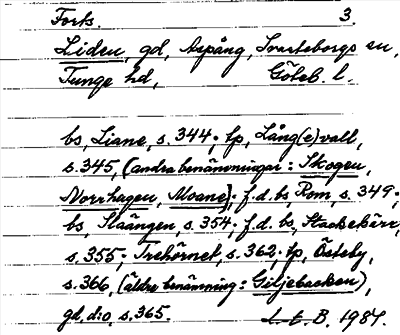 Forts. 3.
Liden, gd, Aspång, Svarteborgs sn,
Tunge hd, Göteb. l.
bs, Liane, s. 344; tp, Lång(e)vall,
s. 345, (andra benämningar: Skogen,
Norrhagen, Moane); f.d. bs, Rom, s. 349;
bs, Slaängen, s. 354; f.d. bs, Stackekärr,
s. 355; Trehörnet, s. 362; tp, Östeby,
s. 366, (äldre benämning: Giljebacken),
gd, d:o, s. 365. 1987.